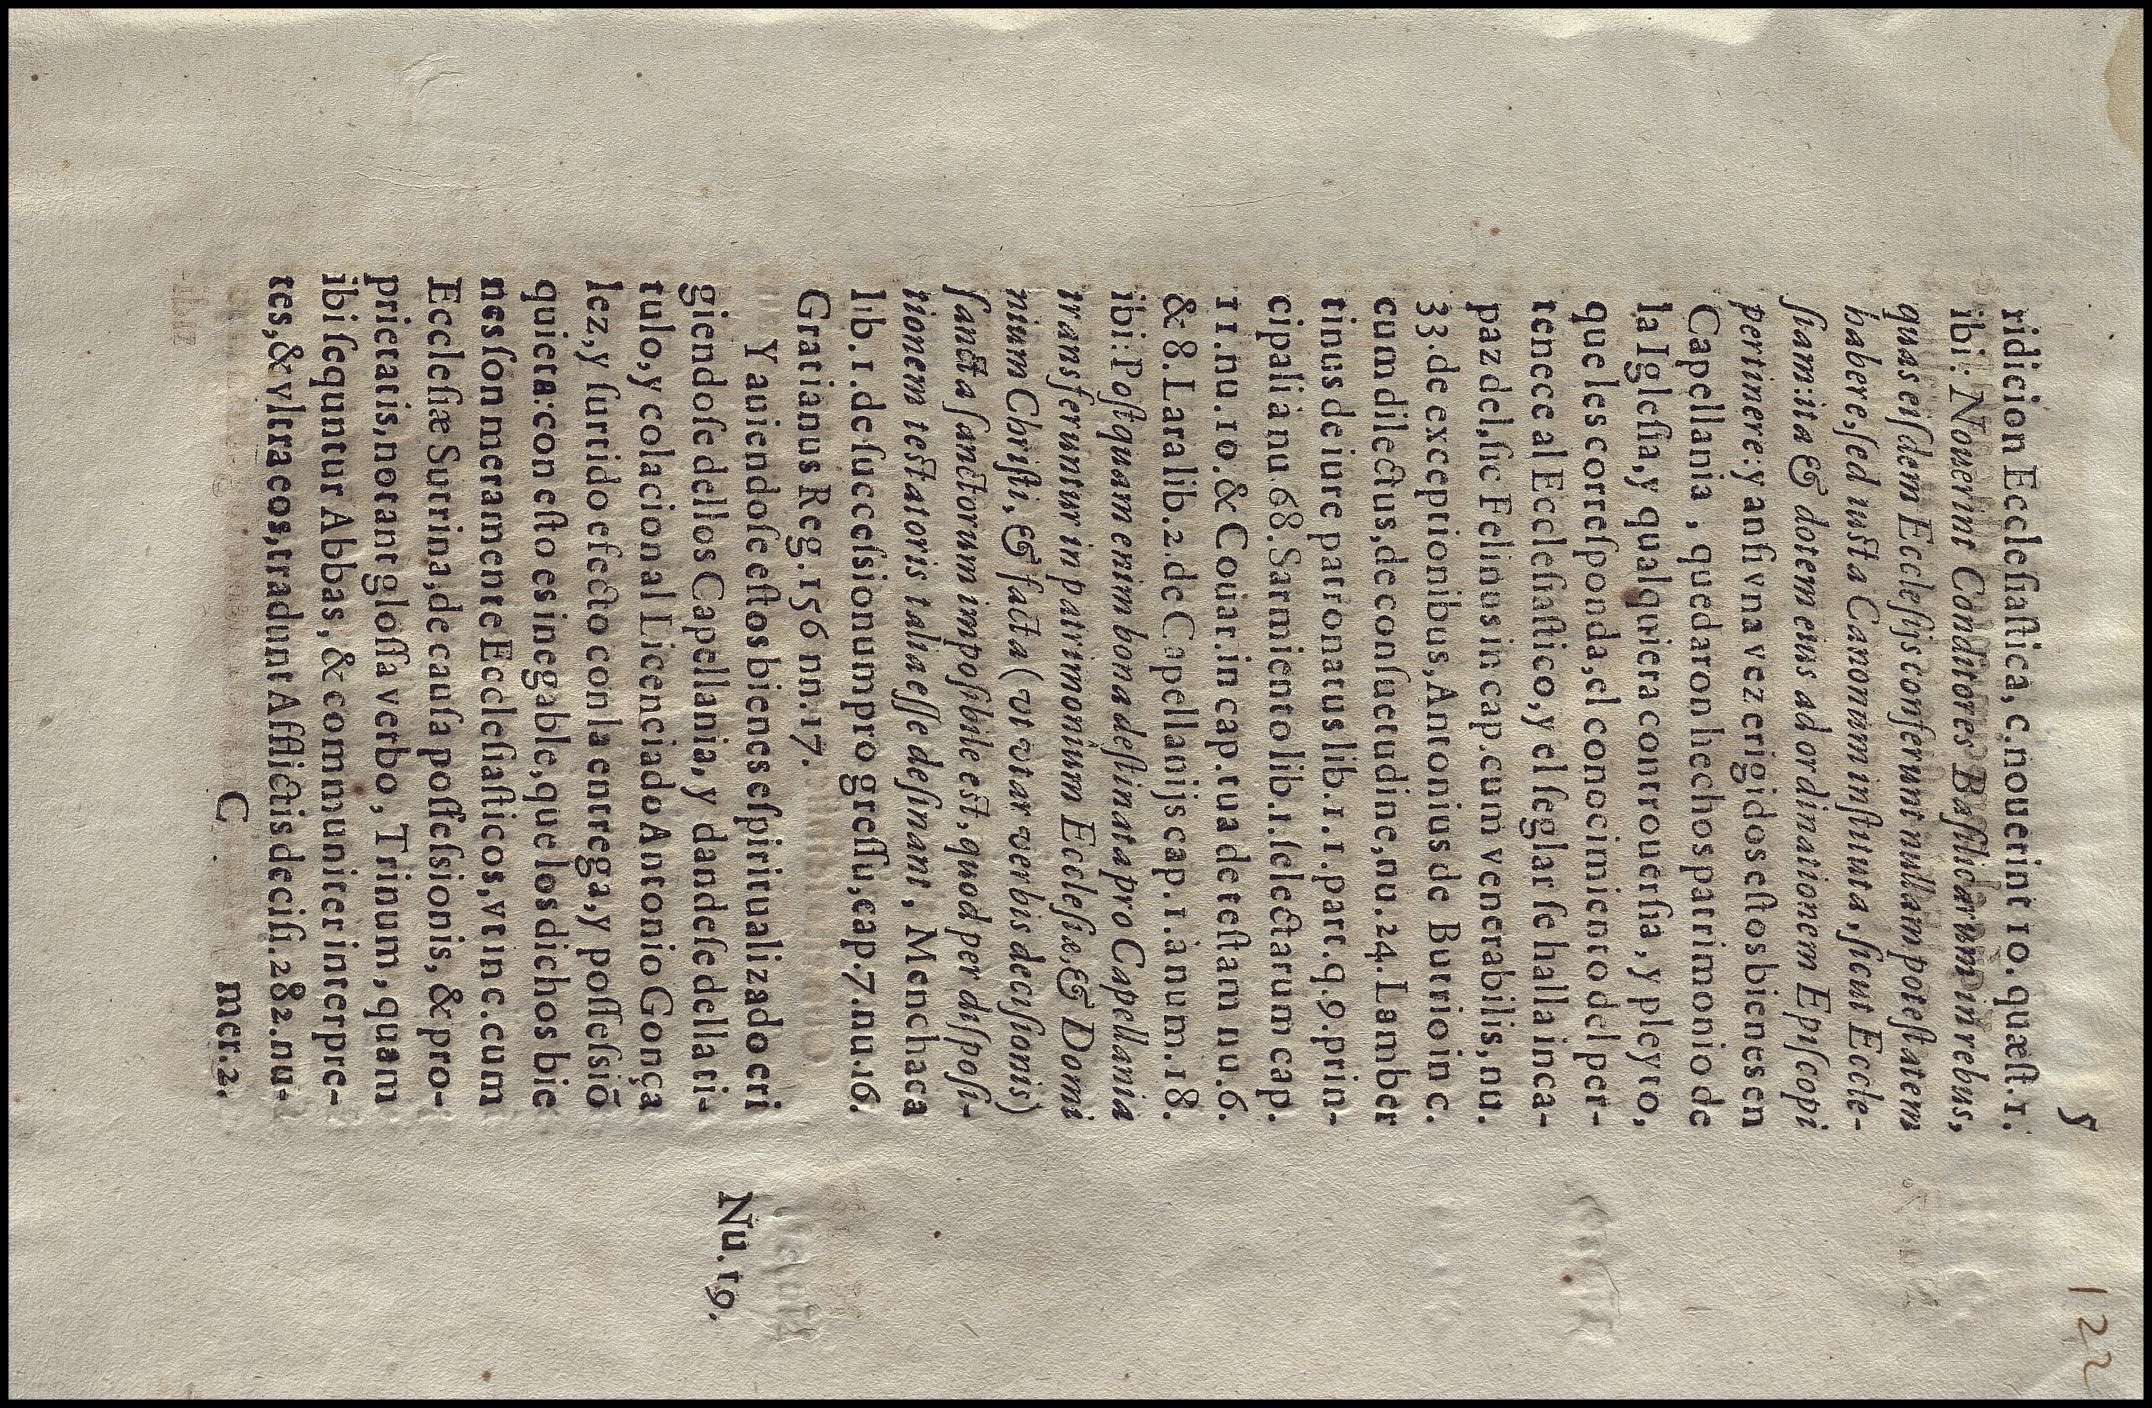 5
122
ridicion Ecclesiastica, c. nouerint 10. quæst. 1.
ibi: Nouerint Conditores Basilicarum in rebus,
quas eisdem Ecclesijs conferunt nullam potestatem
habere, sed iuxta Canonum instituta, sicut Eccle-
siam ita & dotem eius ad ordinationem Episcopi
pertinere: y ansi vna vez erigidos estos bienes en
Capellania, quedaron hechos patrimonio de
la Iglesia, y qualquiera controuersia, y pleyto,
que les corresponda, el conocimiento del per-
tenece al Ecclesiastico, y el seglar se halla inca-
paz del, sic Felinus in cap. cum venerabilis, nu.
33. de exceptionibus, Antonius de Butrio in c.
cum dilectus, de consuetudine, nu. 24. Lamber
tinus de iure patronatus lib. 1. 1. part. q. 9. prin-
cipalia nu. 68. Sarmiento lib. 1. selectarum cap.
11. nu. 10. & Couar. in cap. tua de testam nu. 6.
& 8. Lara lib. 2. de Capellanijs cap. 1. à num. 18.
ibi: Postquam enim bona destinata pro Capellania
transferuntur in patrimonium Ecclesiæ, & Domi
nium Christi, & facta (vt vtar verbis decisionis)
sancta sanctorum imposibile est, quod per disposi-
tionem testatoris talia esse desinant, Menchaca
lib. 1. de succesionum pro gressu, cap. 7. nu. 16.
Gratianus Reg. 156 nn. 17.
Y auiendose estos bienes espiritualizado eri
giendose dellos Capellania, y dandese della ti-
Nu. 19.
tulo, y colacion al Licenciado Antonio Gonça
lez, y surtido efecto con la entrega, y possesiō
quieta: con esto es inegable, que los dichos bie
nes son meramente Ecclesiasticos, vt in c. cum
Ecclesiæ Sutrina, de causa possesionis, & pro-
prietatis, notant glossa verbo, Trinum, quam
ibi sequntur Abbas, & communiter interpre-
tes, & vltra eos, tradunt Afflictis decisi. 282. nu-
C
mer. 2.